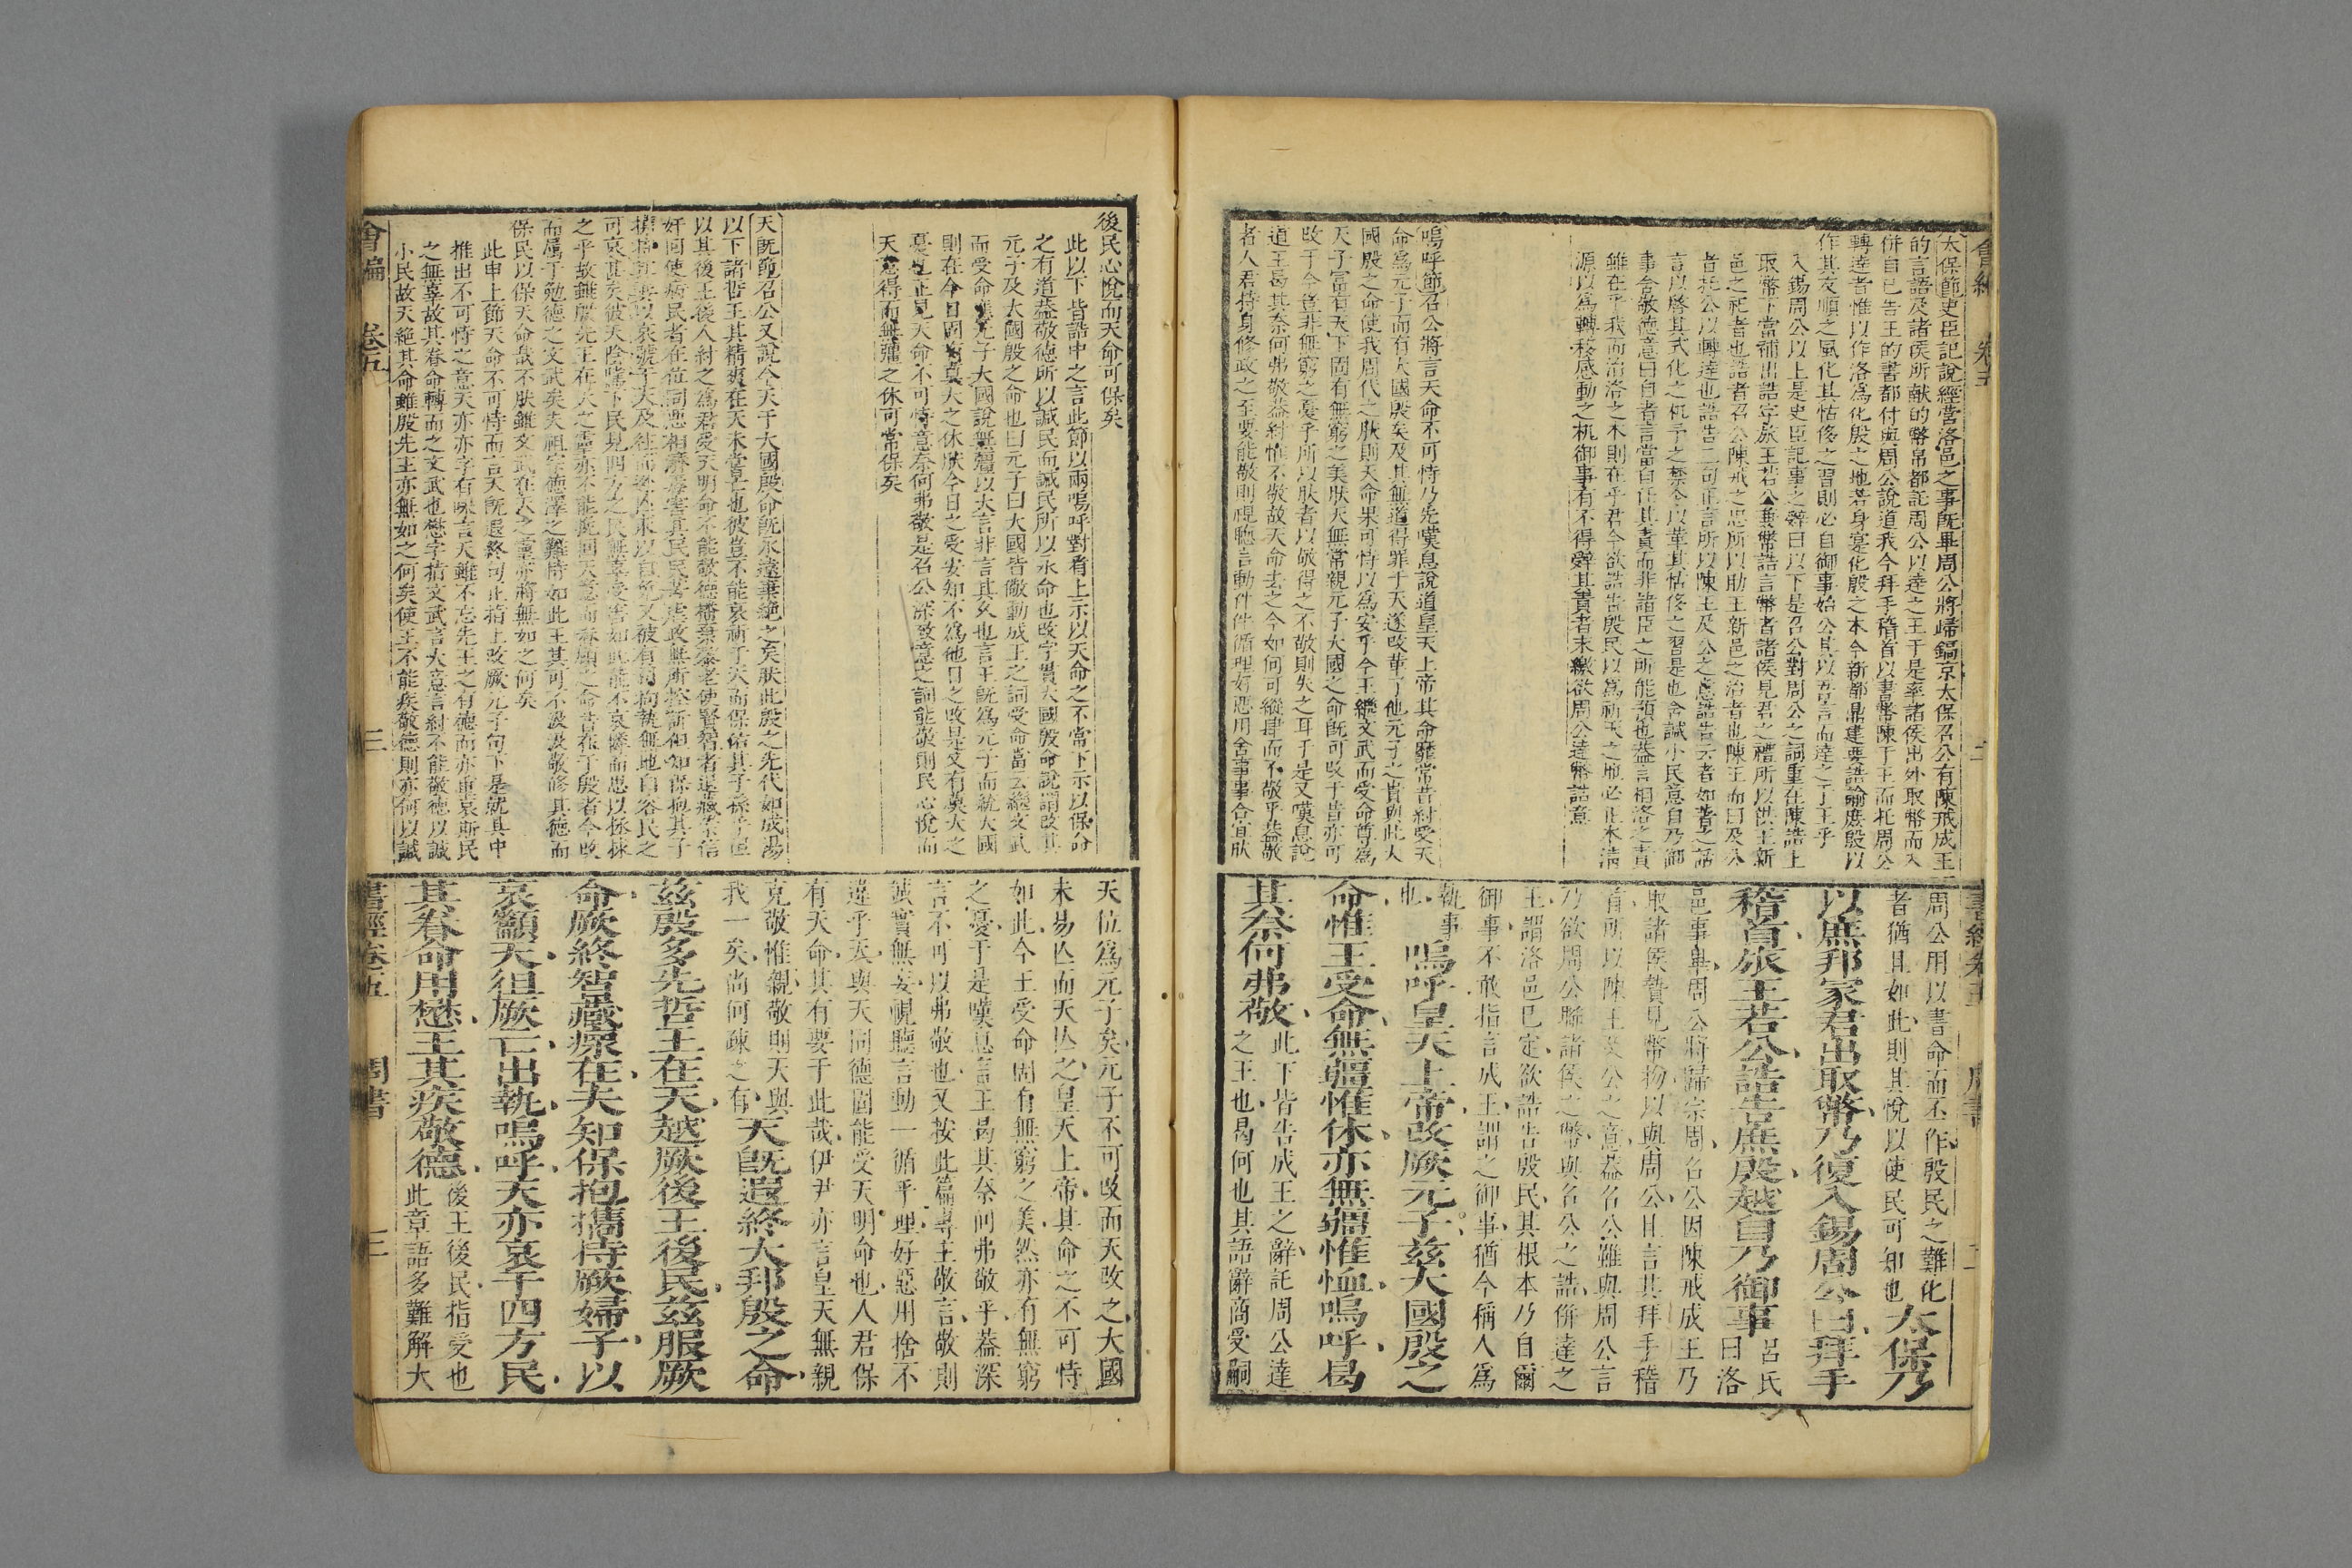 太保節史臣記說經營洛邑之事旣畢周公將歸鎬京太保召公有陳戒成王
的言語及諸侯所獻的幣帛都託周公以達之王于是率諸侯出外取幣而入
併自已告王的書都付與周公說道我今拜手稽首以書幣陳于王而托周公
轉達者惟以作洛爲化殷之地若身寔化殷之本今新都鼎建要誥諭庶殷以
作其友順之風化其怙侈之習則必自御事始公其以吾言而達之于王乎
入錫周公以上是史臣記事之辭曰以下是召公對周公之詞重在陳誥上
取幣下當補出誥字旅王若公兼幣誥言幣者諸侯見君之禮所以供王新
邑之祀者也誥者召公陳戒之忠所以助王新邑之治者也陳王而曰及公
者托公以轉達也誥告二句正言所以陳王及公之意誥告云者如誥之話
言以啓其式化之机予之禁令以革其怙侈之習是也舍誠小民意自乃御
事含敬德意曰自者言當自任其責而非諸臣之所能預也葢言相洛之責
雖在乎我而治洛之本則在乎君今欲誥告殷民以爲祈天之地必正本淸
源以爲轉移感動之机御事有不得辭其責者末繳欲周公達幣誥意
嗚呼節召公將言天命不可恃乃先嘆息說道皇天上帝其命靡常昔紂受天
命爲元子而有大國殷矣及其無道得罪于天遂改革了他元子之貴與此大
國殷之命使我周代之肰則天命果可恃以爲安乎今王繼文武而受命尊爲
天子富有天下固有無窮之美肰天無常親元子大國之命旣可改于昔亦可
改于今豈非無窮之憂乎所以肰者以敬得之不敬則失之耳于是又嘆息說
道王曷其奈何弗敬葢紂惟不敬故天命去之今如何可縱肆而不敬乎葢敬
者人君持身修政之至要能敬則視聽言動件件循理好惡用舍事事合宜肰
周公用以書命而丕作殷民之難化
者猶且如此則其悅以使民可知也太保乃
以庶邦冢君出取幣乃復入錫周公曰拜手
稽首旅王若公誥告庶殷越自乃御事呂氏曰洛
邑事畢周公將歸宗周召公因陳戒成王乃
取諸侯贄見幣物以與周公且言其拜手稽
首所以陳王及公之意葢召公雖與周公言
乃欲周公聯諸侯之幣與召公之誥併達之
王謂洛邑已定欲誥告殷民其根本乃自爾
御事不敢指言成王謂之御事猶今稱人爲
執事也嗚呼皇天上帝改厥元子玆大國殷之
命惟王受命無疆惟休亦無疆惟恤嗚呼曷
其奈何弗敬此下皆告成王之辭託周公達之王也曷何也其語辭商受嗣
後民心悅而天命可保矣
此以下皆誥中之言此節以兩嗚呼對看上示以天命之不常下示以保命
之有道葢敬德所以諴民而諴民所以永命也改字貫大國殷命說謂改其
元子及大國殷之命也曰元子曰大國皆儆動成王之詞受命當云繼文武
而受命惟元子大國說無疆以大言非言其久也言王旣爲元子而統大國
則在今日固有莫大之休肰今日之受安知不爲他日之改是又有莫大之
憂也正見天命不可恃意奈何弗敬是召公深致意之詞能敬則民心悅而
天意得而無疆之休可常保矣
天旣節召公又說今天于大國殷命旣永遠棄絕之矣肰此殷之先代如成湯
以下諸哲王其精爽在天未嘗亡也彼豈不能哀祈于天而保佑其子孫乎但
以其後王後人紂之爲君受天明命不能敬德播棄黎老使賢智者退藏崇信
奸回使病民者在位同惡相濟毒害其民民苦虐政無所控訴但知保抱其子
攜持其妻以哀號于天及往而逃亡求以自免又被有司拘執無地自容民之
可哀甚矣彼天陰騭下民見四方之民無辜受害如此能不哀憐而思以拯救
之乎故雖殷先王在天之靈亦不能挽回天意而眷顧之命昔在于殷者今改
而屬于勉德之文武矣夫祖宗德澤之難恃如此王其可不汲汲敬修其德而
保民以保天命哉不肰雖文武在天之靈亦將無如之何矣
此申上節天命不可恃而言天旣遐終句正指上改厥元子句下是就其中
推出不可恃之意天亦亦字有味言天雖不忘先王之有德而亦重哀斯民
之無辜故其眷命轉而之文武也懋字指文武言大意言紂不能敬德以諴
小民故天絕其命雖殷先王亦無如之何矣使王不能疾敬德則亦何以諴
天位爲元子矣元子不可改而天改之大國
未易亾而天亾之皇天上帝其命之不可恃
如此今王受命固有無窮之美然亦有無窮
之憂于是嘆息言王曷其奈何弗敬乎葢深
言不可以弗敬也又按此篇專主敬言敬則
誠實無妄視聽言動一循乎理好惡用捨不
違乎天與天同德固能受天明命也人君保
有天命其有要于此哉伊尹亦言皇天無親
克敬惟親敬則天與我一矣尚何疎之有天旣遐終大邦殷之命
玆殷多先哲王在天越厥後王後民玆服厥
命厥終智藏瘝在夫知保抱攜持厥婦子以
哀籲天徂厥亡出執嗚呼天亦哀于四方民
其眷命用懋王其疾敬德後王後民指受也此章語多難解大
會編 卷五 三
書經卷五 周書 三